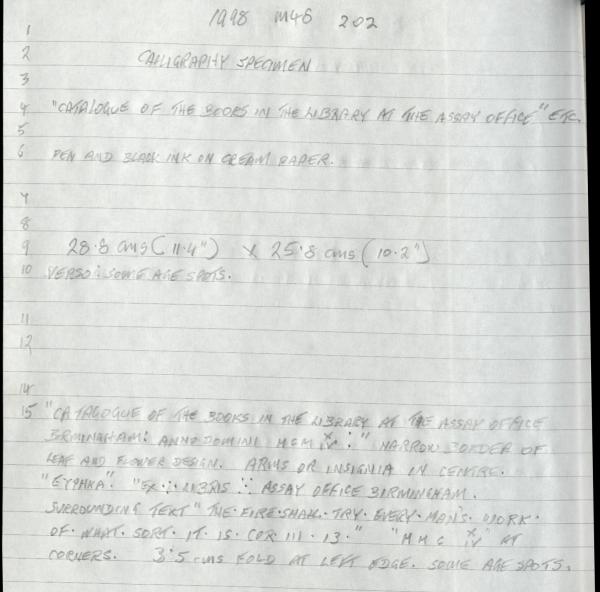 1998 M46 202
1
2 CALLIGRAPHY SPECIMEN
3
4 "CATALOGUE OF THE BOOKS IN THE LIBRARY AT THE ASSAY OFFICE" ETC.
5
6 PEN AND BLACK INK ON CREAM PAPER.
7
8
9 28.8 cms (11.4") X 25.8 cms (10.2")
10 VERSO: SOME AGE SPOTS.
11
12
14
15 "CATAGOGUE OF THE BOOKS IN THE LIBRARY AT THE ASSAY OFFICE
BIRMINGHAM: ANNO DOMINI MCM X IV:" NARROW BORDER OF
LEAF AND FLOWER DESIGN. ARMS OR INSIGNIA IN CENTRE.
"EYPHKA". "EX ∴ LIBRIS ∵ ASSAY OFFICE BIRMINGHAM.
SURROUNDING TEXT "THE·FIRE·SHALL·TRY·EVERY·MAN'S·WORK·
OF·WHAT·SORT·IT·IS·COR III·13." "MMC X IV" AT
CORNERS. 3.5 cms FOLD AT LEFT EDGE. SOME AGE SPOTS.